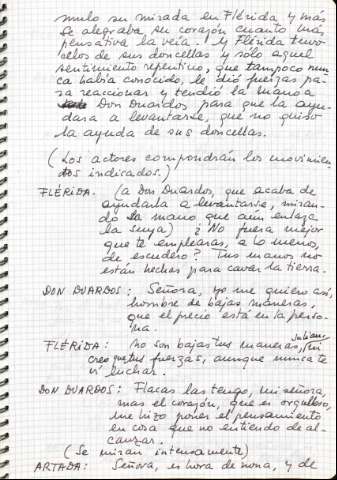 mulo su mirada en Flérida, y más
se alegraba su corazón cuanto más
pensativa la veía. Y Flérida tuvo
celos de sus doncellas y solo aquel
sentimiento repentino, que tampoco nun-
ca había conocido, le dió fuerzas pa-
ra reaccionar y tendió la mano a
Don Duardos para que la ayu-
dara a levantarse, que no quiso
la ayuda de sus doncellas.
(Los actores compondrán los movimien-
tos indicados.)
FLÉRIDA. (a Don Duardos, que acaba de
ayudarla a levantarse, miran-
do la mano que aún enlaza
la suya) ¿No fuera mejor
que te emplearas, a lo menos,
de escudero? Tus manos no
están hechas para cavar la tierra.
DON DUARDOS: Señora, yo me quiero así,
hombre de bajas maneras,
que el precio está en la perso-
na.
FLÉRIDA: No son bajas tus maneras, Julián, ni
creo que tus fuerzas, aunque nunca te
vi luchar.
DON DUARDOS: Flacas las tengo, mi señora,
mas el corazón, que es orgulloso,
me hizo poner el pensamiento
en cosa que no entiendo de al-
canzar.
(Se miran intensamente)
ARTADA: Señora, es hora de nona, y de